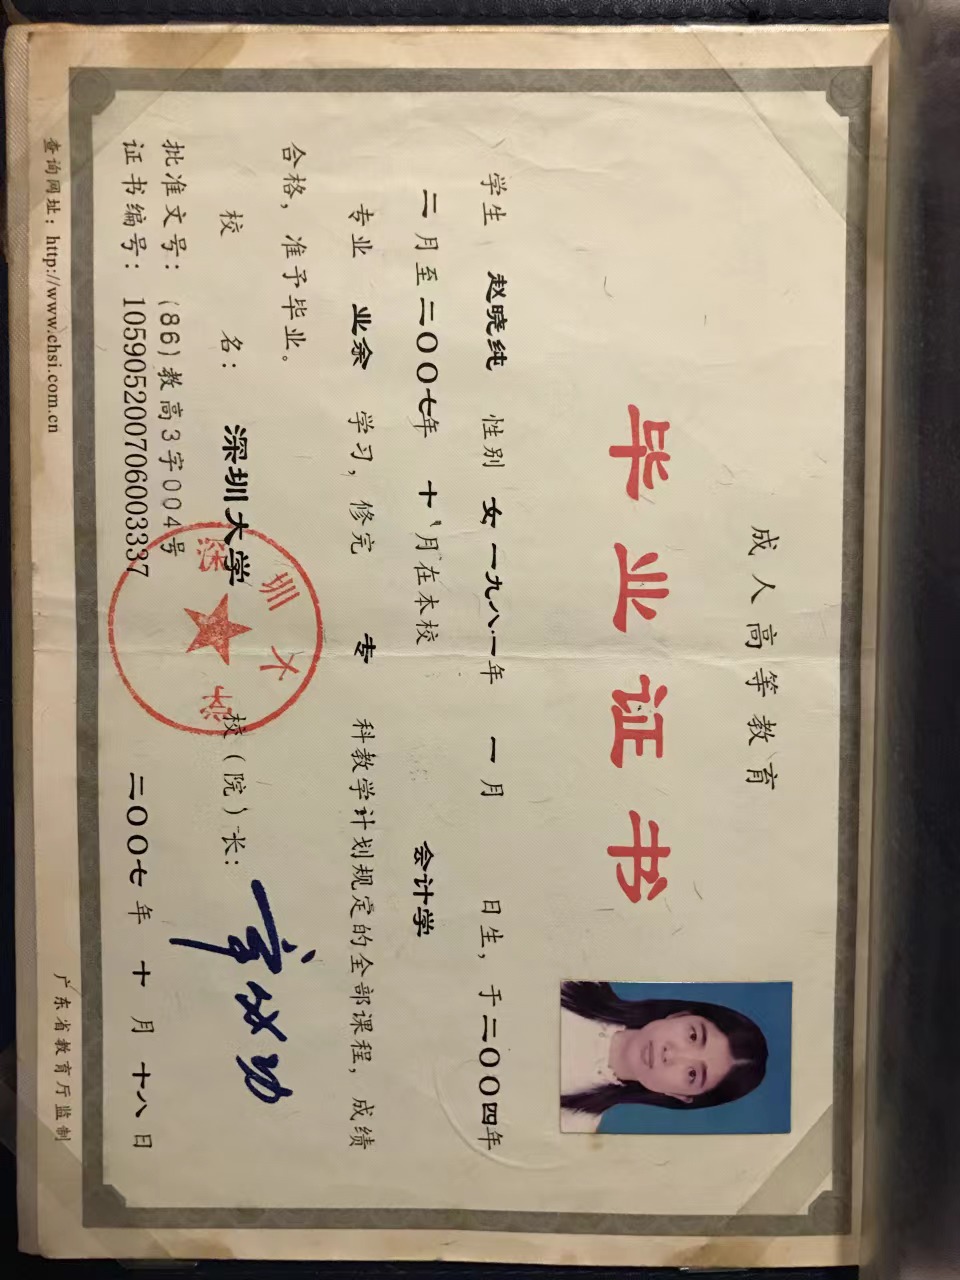 成人高等教育
毕业证书
学生 赵晓纯 性别 女 一九八一年 一月 日生，于二〇〇四年
二月至二〇〇七年 十月在本校 会计学
专业 业余 学习，修完 专 科教学计划规定的全部课程，成绩
合格，准予毕业。
校 名：深圳大学 校（院）长：
批准文号：(86)教高3字004号
证书编号：105905200706003337 二〇〇七年 十月 十八日
深圳大学
查询网址：http://www.chsi.com.cn 广东省教育厅监制